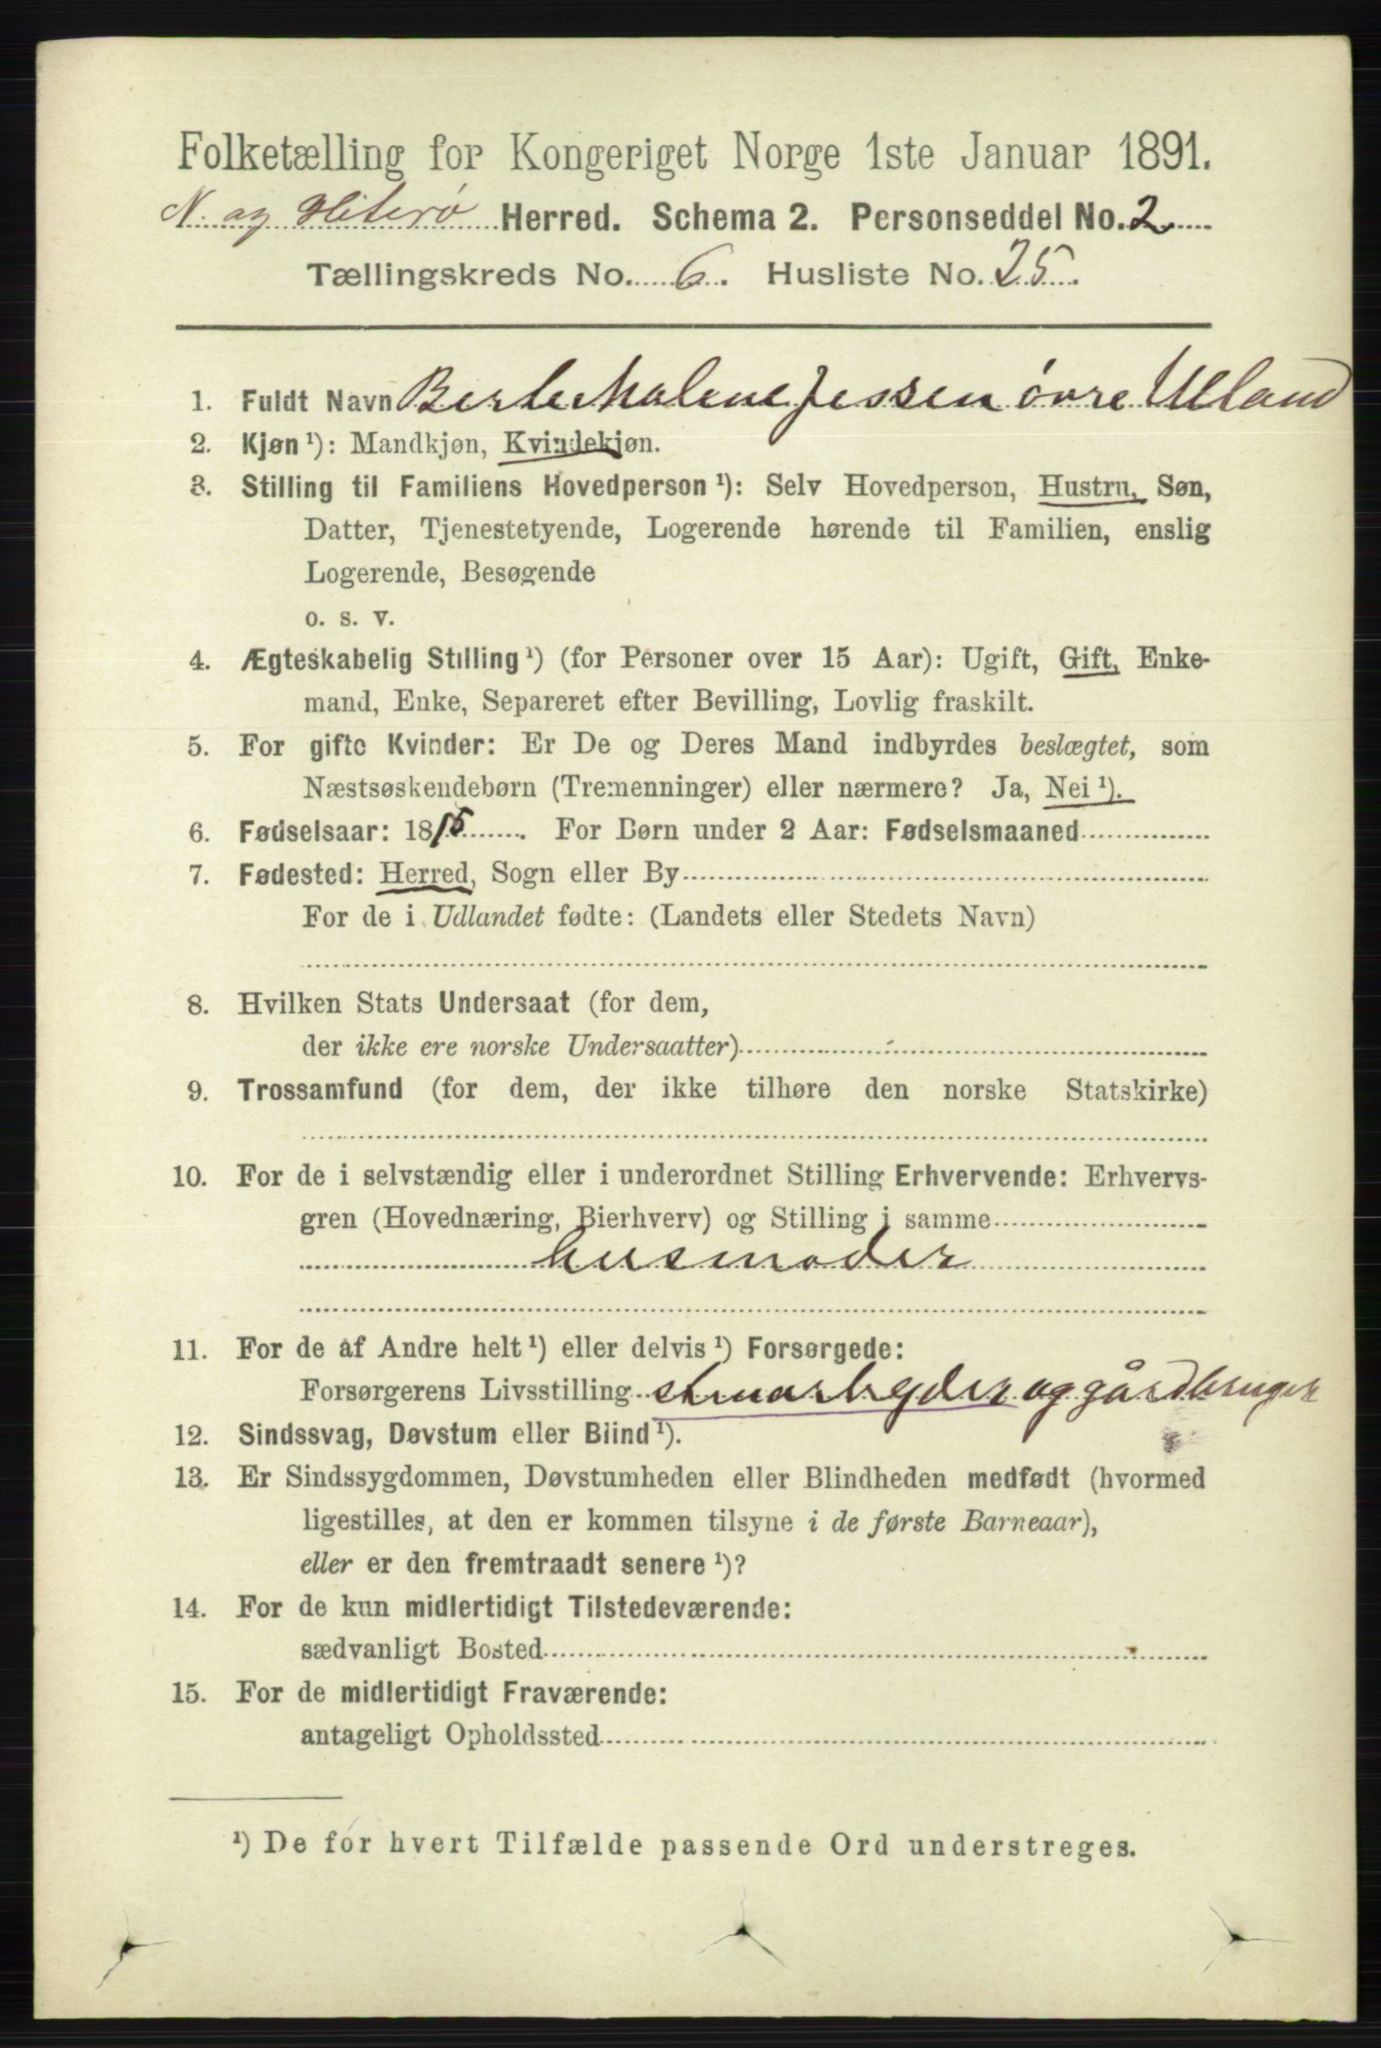 Folketælling for Kongeriget Norge 1ste Januar 1891.
N. og Hiterø Herred. Schema 2. Personseddel No. 2
Tællingskreds No. 6. Husliste No. 25.
1. Fuldt Navn Berte Malene Jessen övre Ulland
2. Kjøn ¹): Mandkjøn, Kvindekjøn.
3. Stilling til Familiens Hovedperson ¹): Selv Hovedperson, Hustru, Søn,
Datter, Tjenestetyende, Logerende hørende til Familien, enslig
Logerende, Besøgende
o. s. v.
4. Ægteskabelig Stilling ¹) (for Personer over 15 Aar): Ugift, Gift, Enke-
mand, Enke, Separeret efter Bevilling, Lovlig fraskilt.
5. For gifte Kvinder: Er De og Deres Mand indbyrdes beslægtet, som
Næstsøskendebørn (Tremenninger) eller nærmere? Ja, Nei ¹).
6. Fødselsaar: 1815. For Børn under 2 Aar: Fødselsmaaned
7. Fødested: Herred, Sogn eller By
For de i Udlandet fødte: (Landets eller Stedets Navn)
8. Hvilken Stats Undersaat (for dem,
der ikke ere norske Undersaatter)
9. Trossamfund (for dem, der ikke tilhøre den norske Statskirke)
10. For de i selvstændig eller i underordnet Stilling Erhvervende: Erhvervs-
gren (Hovednæring, Bierhverv) og Stilling i samme
husmoder
11. For de af Andre helt ¹) eller delvis ¹) Forsørgede:
Forsørgerens Livsstilling og gårdbruger
12. Sindssvag, Døvstum eller Blind ¹).
13. Er Sindssygdommen, Døvstumheden eller Blindheden medfødt (hvormed
ligestilles, at den er kommen tilsyne i de første Barneaar),
eller er den fremtraadt senere ¹)?
14. For de kun midlertidigt Tilstedeværende:
sædvanligt Bosted
15. For de midlertidigt Fraværende:
antageligt Opholdssted
¹) De for hvert Tilfælde passende Ord understreges.